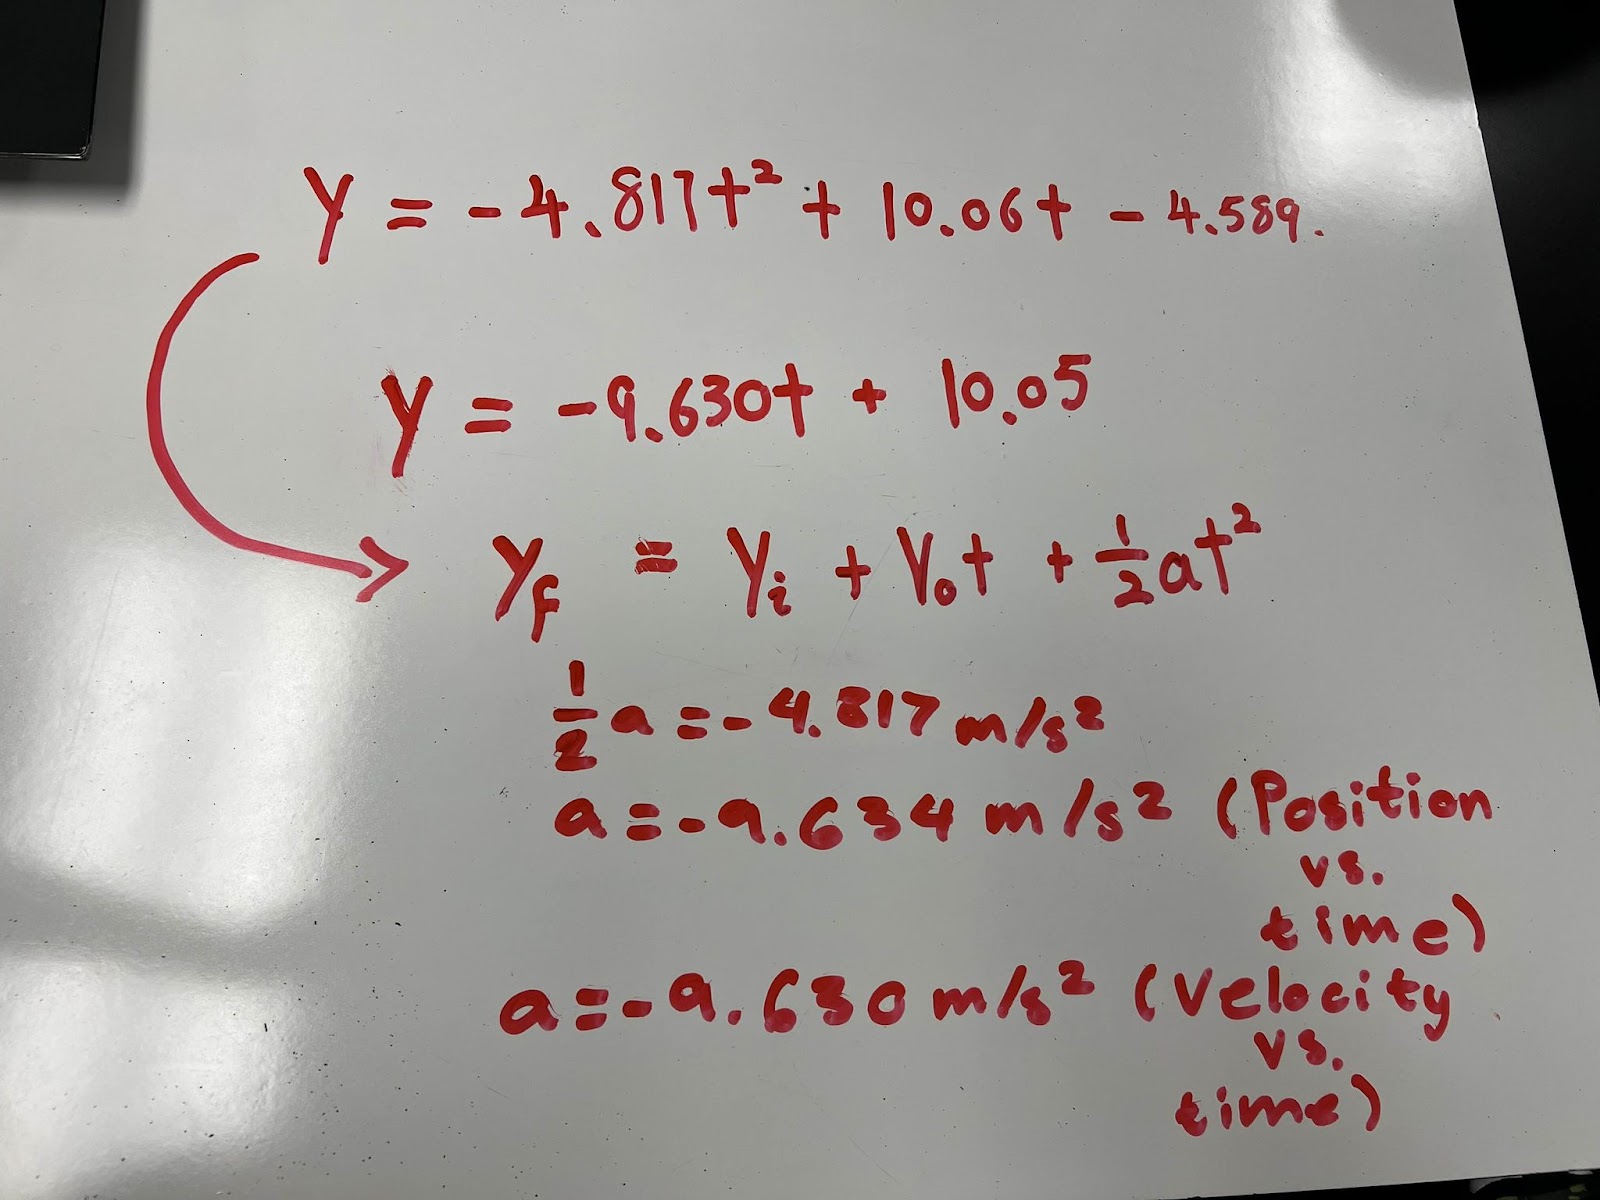 y = -4.817t² + 10.06t - 4.589.
y = -9.630t + 10.05
y_f = y_i + V₀t + ½at²
½a = -4.817 m/s²
a = -9.634 m/s² (Position
vs.
time)
a = -9.630 m/s² (Velocity
vs.
time)